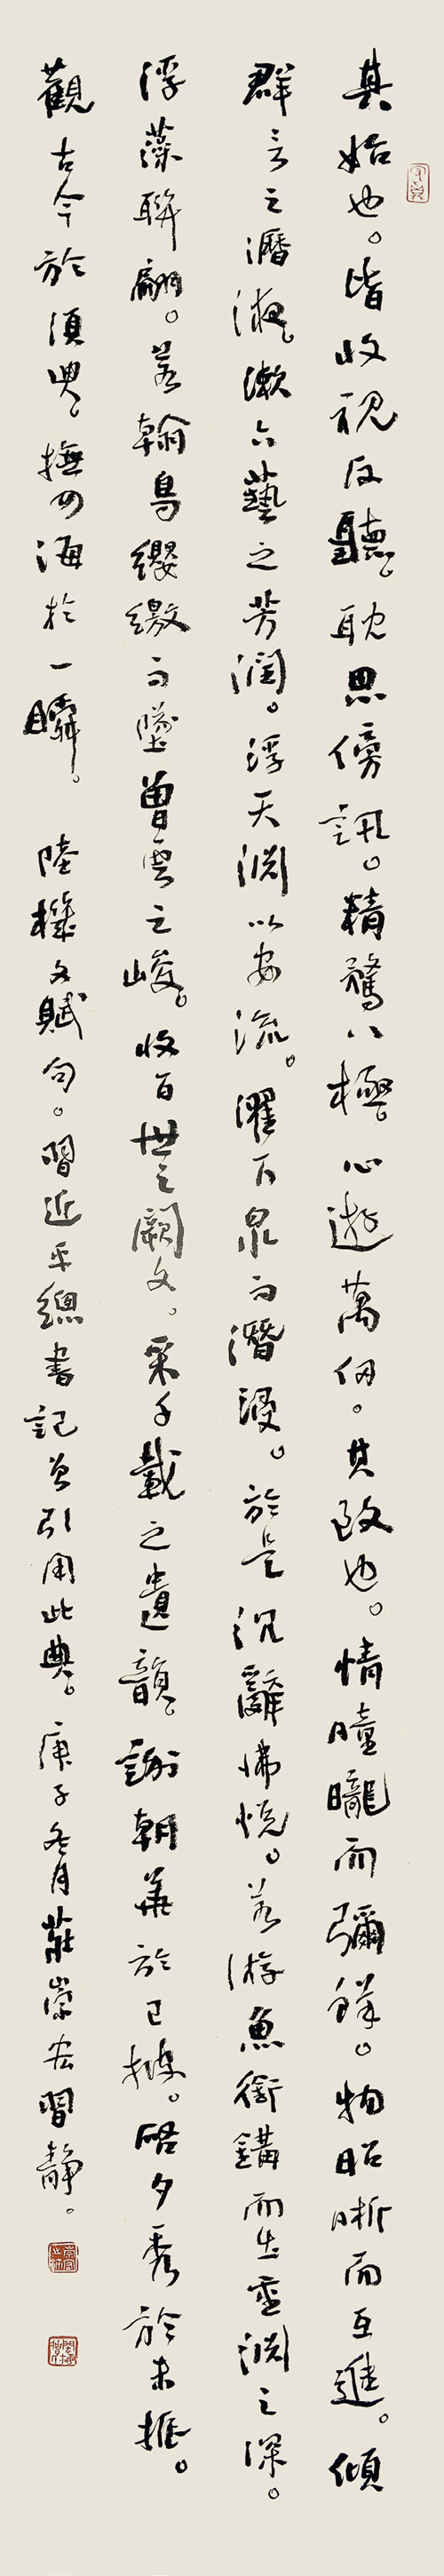 其始也。皆收視反聽。耽思傍訊。精騖八極。心遊萬仞。其致也。情曈曨而彌鮮。物昭晰而互進。傾
群言之瀝液。漱六藝之芳潤。浮天淵以安流。濯下泉而潛浸。於是沉辭怫悅。若游魚銜鉤而出重淵之深。
浮藻聯翩。若翰鳥纓繳而墜曾雲之峻。收百世之闕文。采千載之遺韻。謝朝華於已披。啓夕秀於未振。
觀古今於須臾。撫四海於一瞬。陸機文賦句。習近平總書記曾引用此典。庚子冬月莊崇宏習靜。